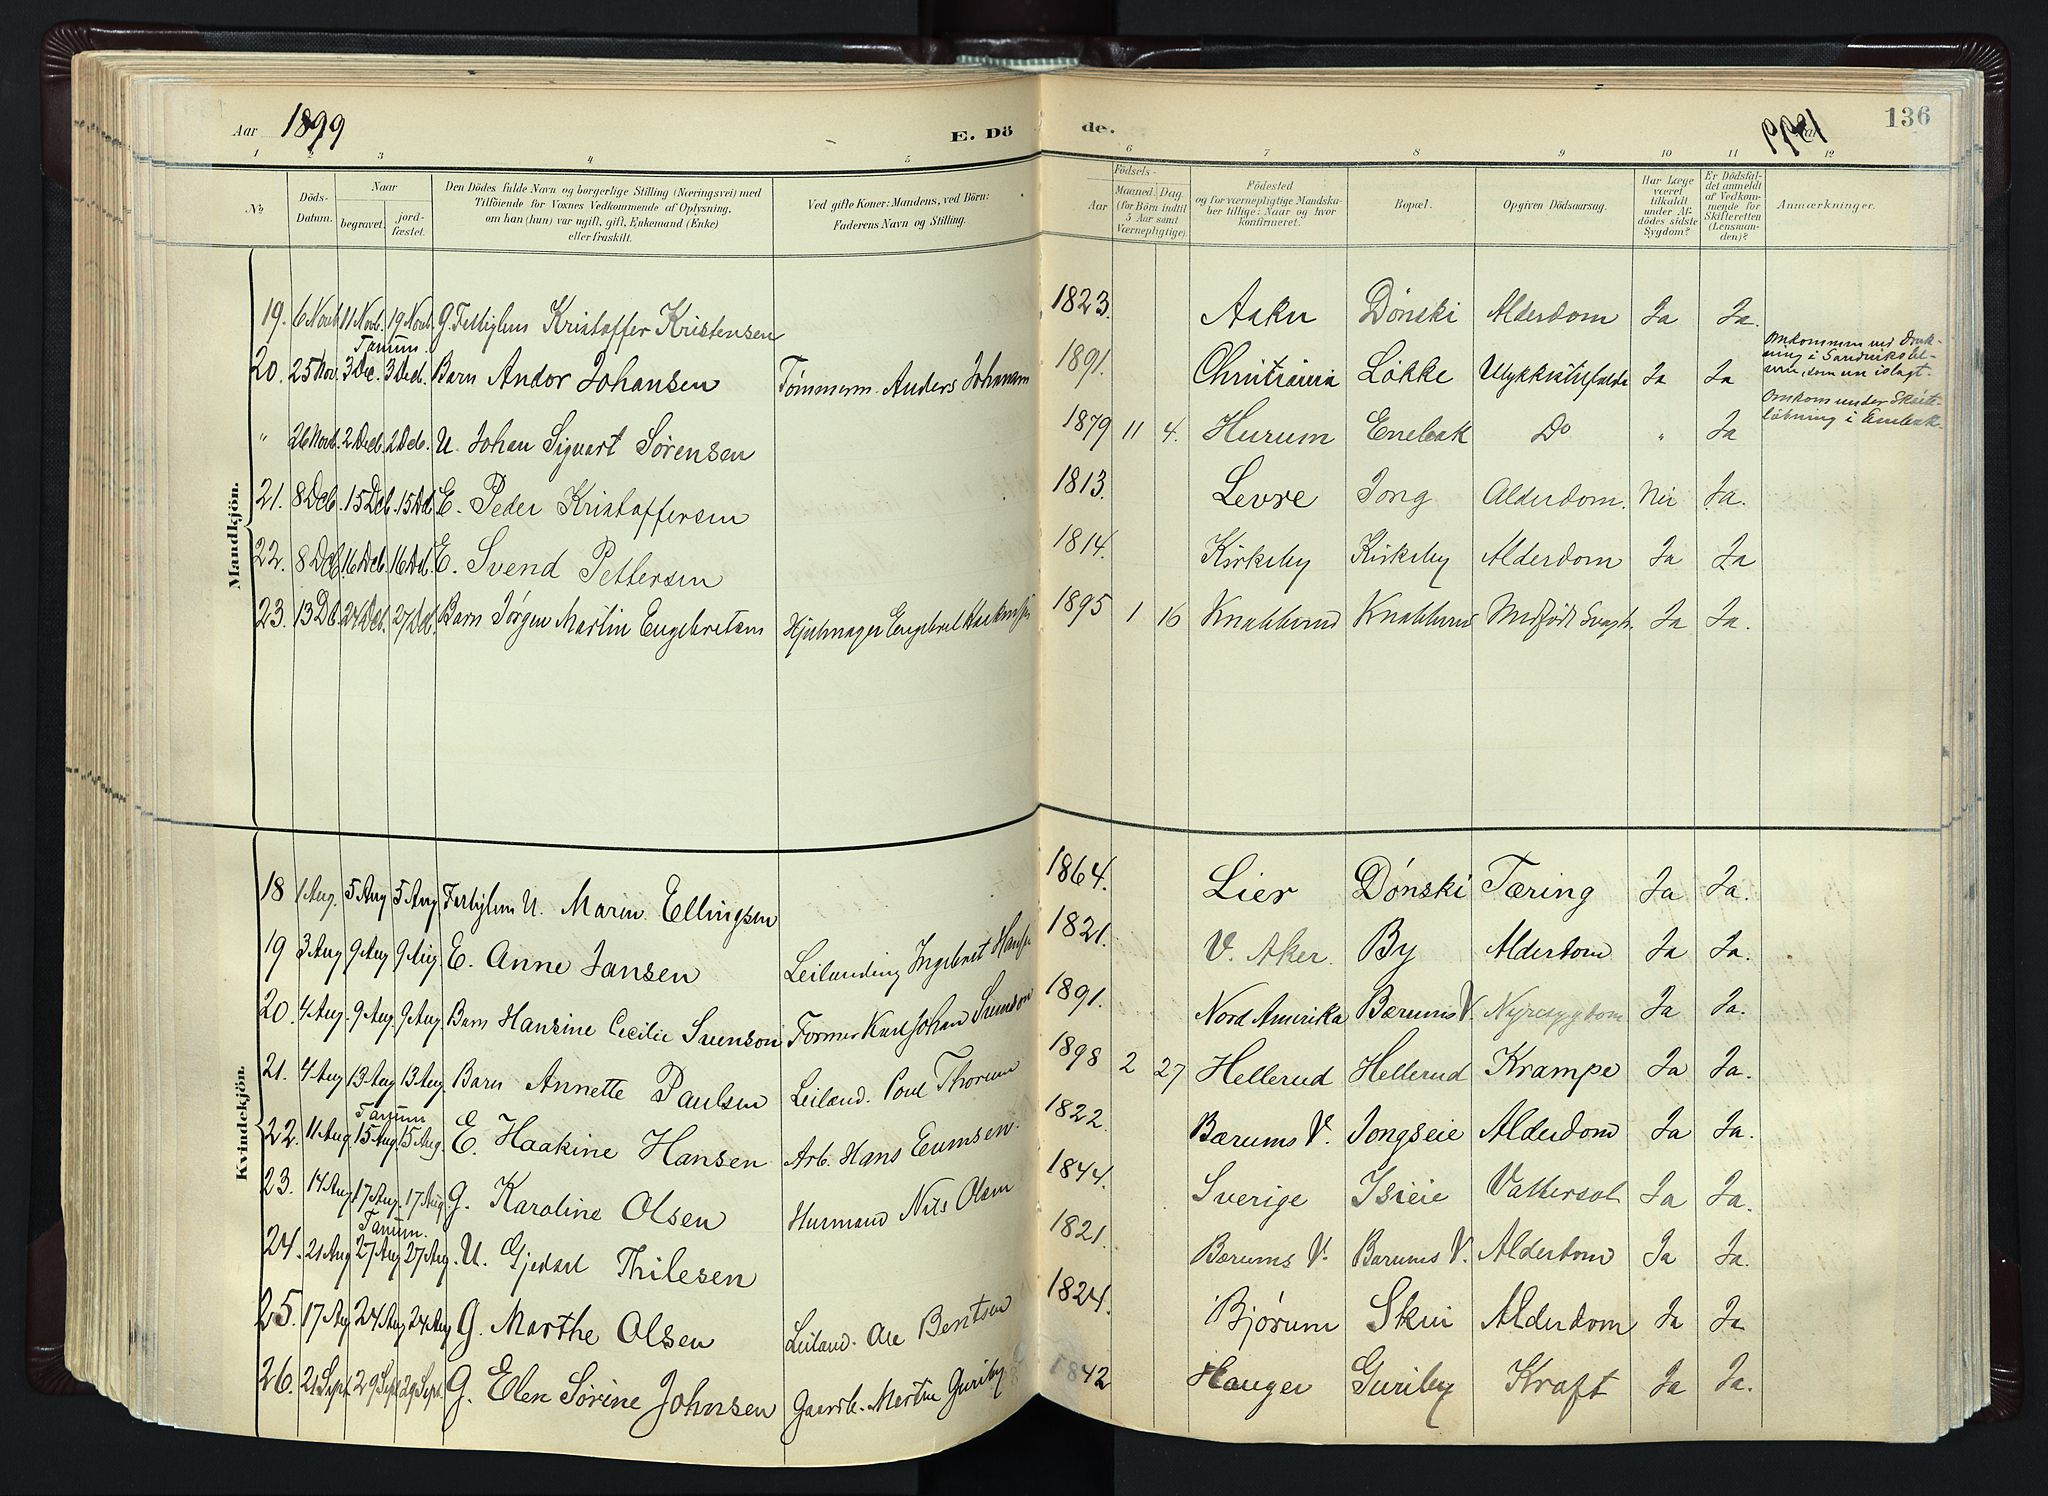 Aar 1899 E. Dö de. 1899 136
1 2 3 4 5 6 7 8 9 10 11 12
No
Döds-Datum.
Naar
begravet.
jord-fæstet.
Den Dödes fulde Navn og borgerlige Stilling (Næringsvei) med
Tilföiende for Voxnes Vedkommende af Oplysning,
om han (hun) var ugift, gift, Enkemand (Enke)
eller fraskilt.
Ved gifte Koner: Mandens, ved Börn:
Faderens Navn og Stilling.
Födsels-
Aar
Maaned. Dag.
(for Börn indtil
5 Aar samt
Værnepligtige).
Födested
og for værnepligtige Mandska-
ber tillige: Naar og hvor
konfirmeret.
Bopæl.
Opgiven Dödsaarsag.
Har Læge
været
tilkaldt
under Af-
dödes sidste
Sygdom?
Er Dödsfal-
det anmeldt
af Vedkom-
mende for
Skifteretten
(Lensman-
den)?
Anmærkninger.
Mandkjön.
19. 6 Novb. 11 Novb. 19 Novb. G. Kristoffer Kristensen 1823. Asker Dønski Alderdom Ja Ja.
Tanum.
20. 25 Nov. 3 Dec. 3 Decb. Barn Andor Johansen Tømmerm. Anders Johansen 1891. Christiania Løkke Ulykkestilfælde Ja Ja
" 26 Novb. 2 Decb. 2 Decb. U. Johan Sigvart Sørensen 1879 11 4. Hurum Enebak Do " Ja Omkom under Skøite-
løbning i
21. 8 Dcb. 15 Dcb. 15 Dcb. E. Peder Kristoffersen 1813. Levre Jong Alderdom. Nei Ja.
22. 8 Dcb. 16 Dcb. 16 Dcb. E. Svend Pettersen 1814. Kirkeby Kirkeby Alderdom Ja Ja
23. 13 Db. 27 Dcb. Barn Jørgen Martin Engebretsen Hjulmager Engebret 1895 1 16 Medfødt Svagh. Ja Ja.
Kvindekjön.
18 1 Aug. 5 Aug 5 Aug U. Maren Ellingsen 1864. Lier Dønski Tæring Ja Ja.
19 3 Aug 9 Aug 9 Aug. E. Anne Jansen Leilænding Ingebret 1821. V. Aker. By Alderdom Ja Ja.
20. 4 Aug. 9 Aug. 9 Aug. Barn Hansine Cecilie Svenson Former Karl Johan Svenson 1891. Nord Amerika Bærums V. Nyresygdom Ja Ja.
21. 4 Aug 13 Aug 13 Aug. Barn Annette Paulsen Leilænd. Poul 1898 2 27 Hellerud Hellerud Krampe Ja Ja.
Tanum
22. 11 Aug 15 Aug. 15 Aug. E. Haakine Hansen Arb. Hans 1822. Bærums V. Jongseie Alderdom Ja Ja.
23. 14 Aug 17 Aug. 17 Aug. G. Karoline Olsen Husmand Nils Olsen 1844. Sverige Isieie Vattersot Ja Ja.
Tanum.
24. 21 Aug 27 Aug 27 Aug. U. Thilesen 1821. Bærums V. Bærums V. Alderdom Ja Ja.
25. 17 Aug 24 Aug 24 Aug G. Marthe Olsen Leilænd. Ole Bentsen 1824. Bjørum Skui Alderdom Ja Ja
26. 21 Sept. 29 Sept 29 Sept. G. Elen Sørine Johnsen Gaardb. Martin Guriby 1842 Hauger Guriby Kræft Ja Ja.